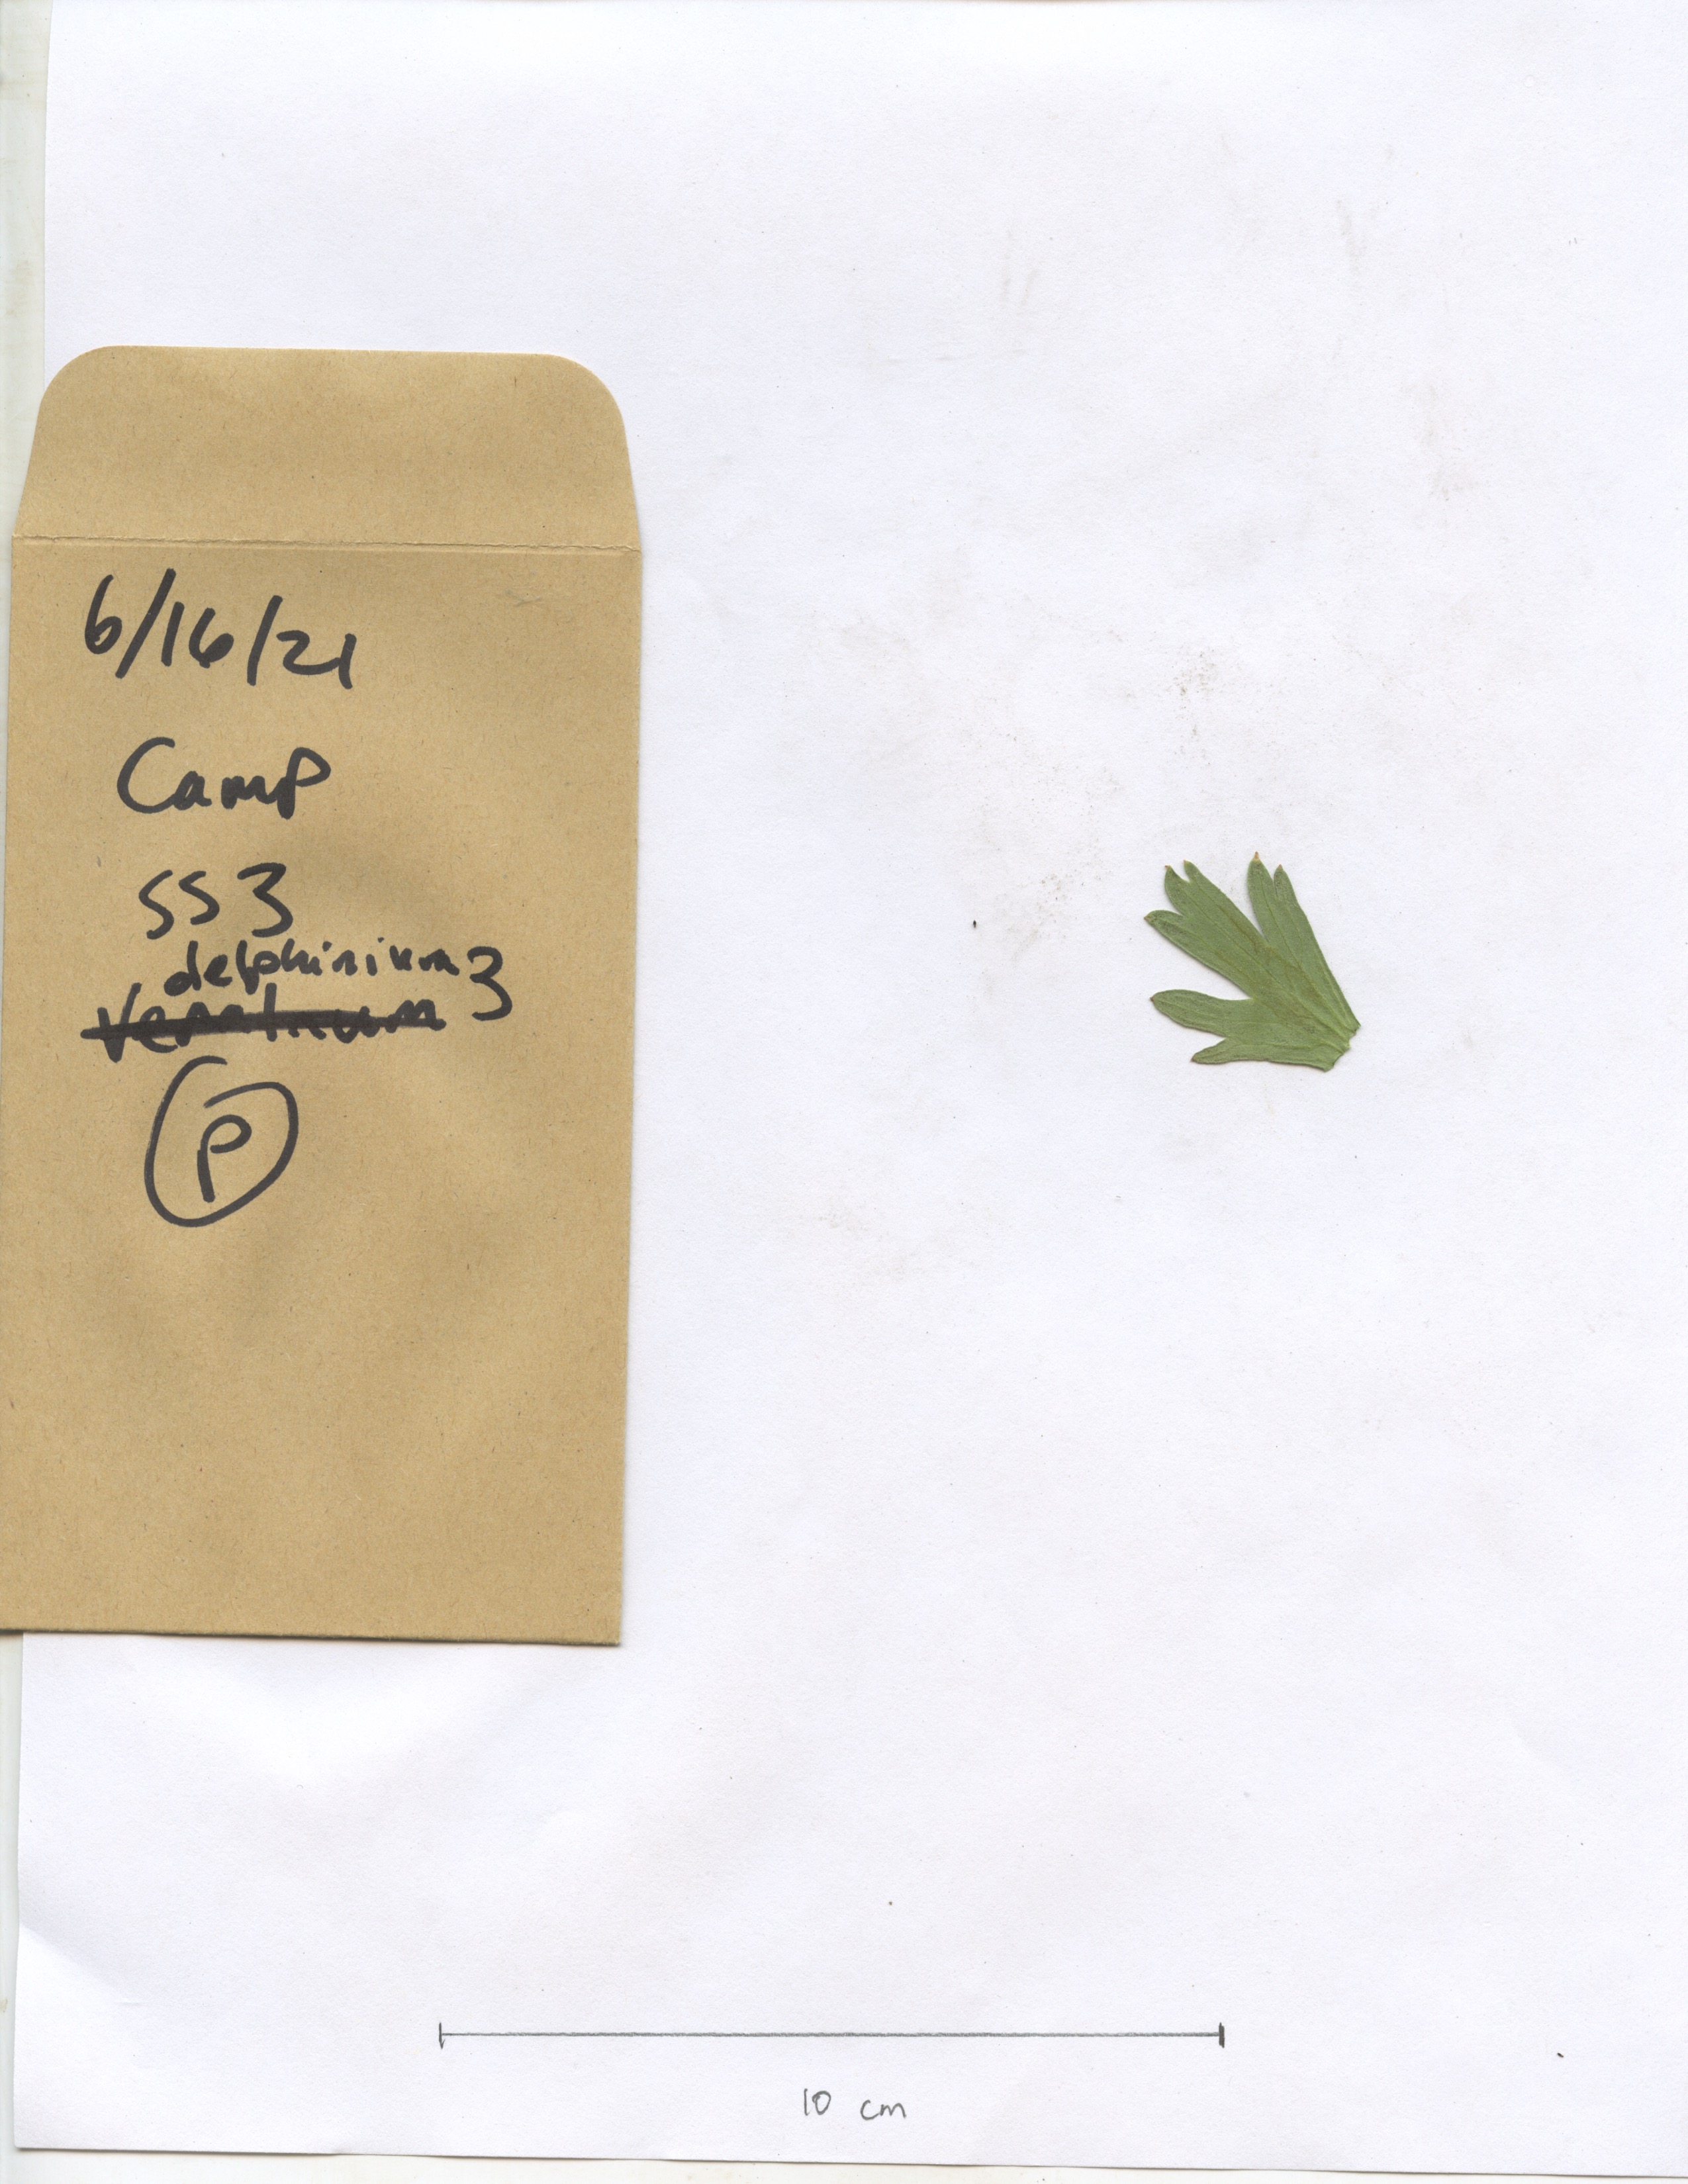 6/16/21
Camp
SS3
delphinium 3
Veratrum
P
10 cm